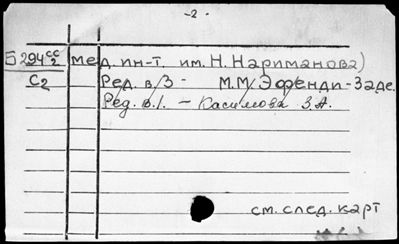 -2-
Б 294 сс/2 мед. ин-т. им. Н. Нариманова)
С2 Ред. в/3 - М.М. Эфенди-Заде.
Ред. в.1. - Касимова З.А.
см. след. карт